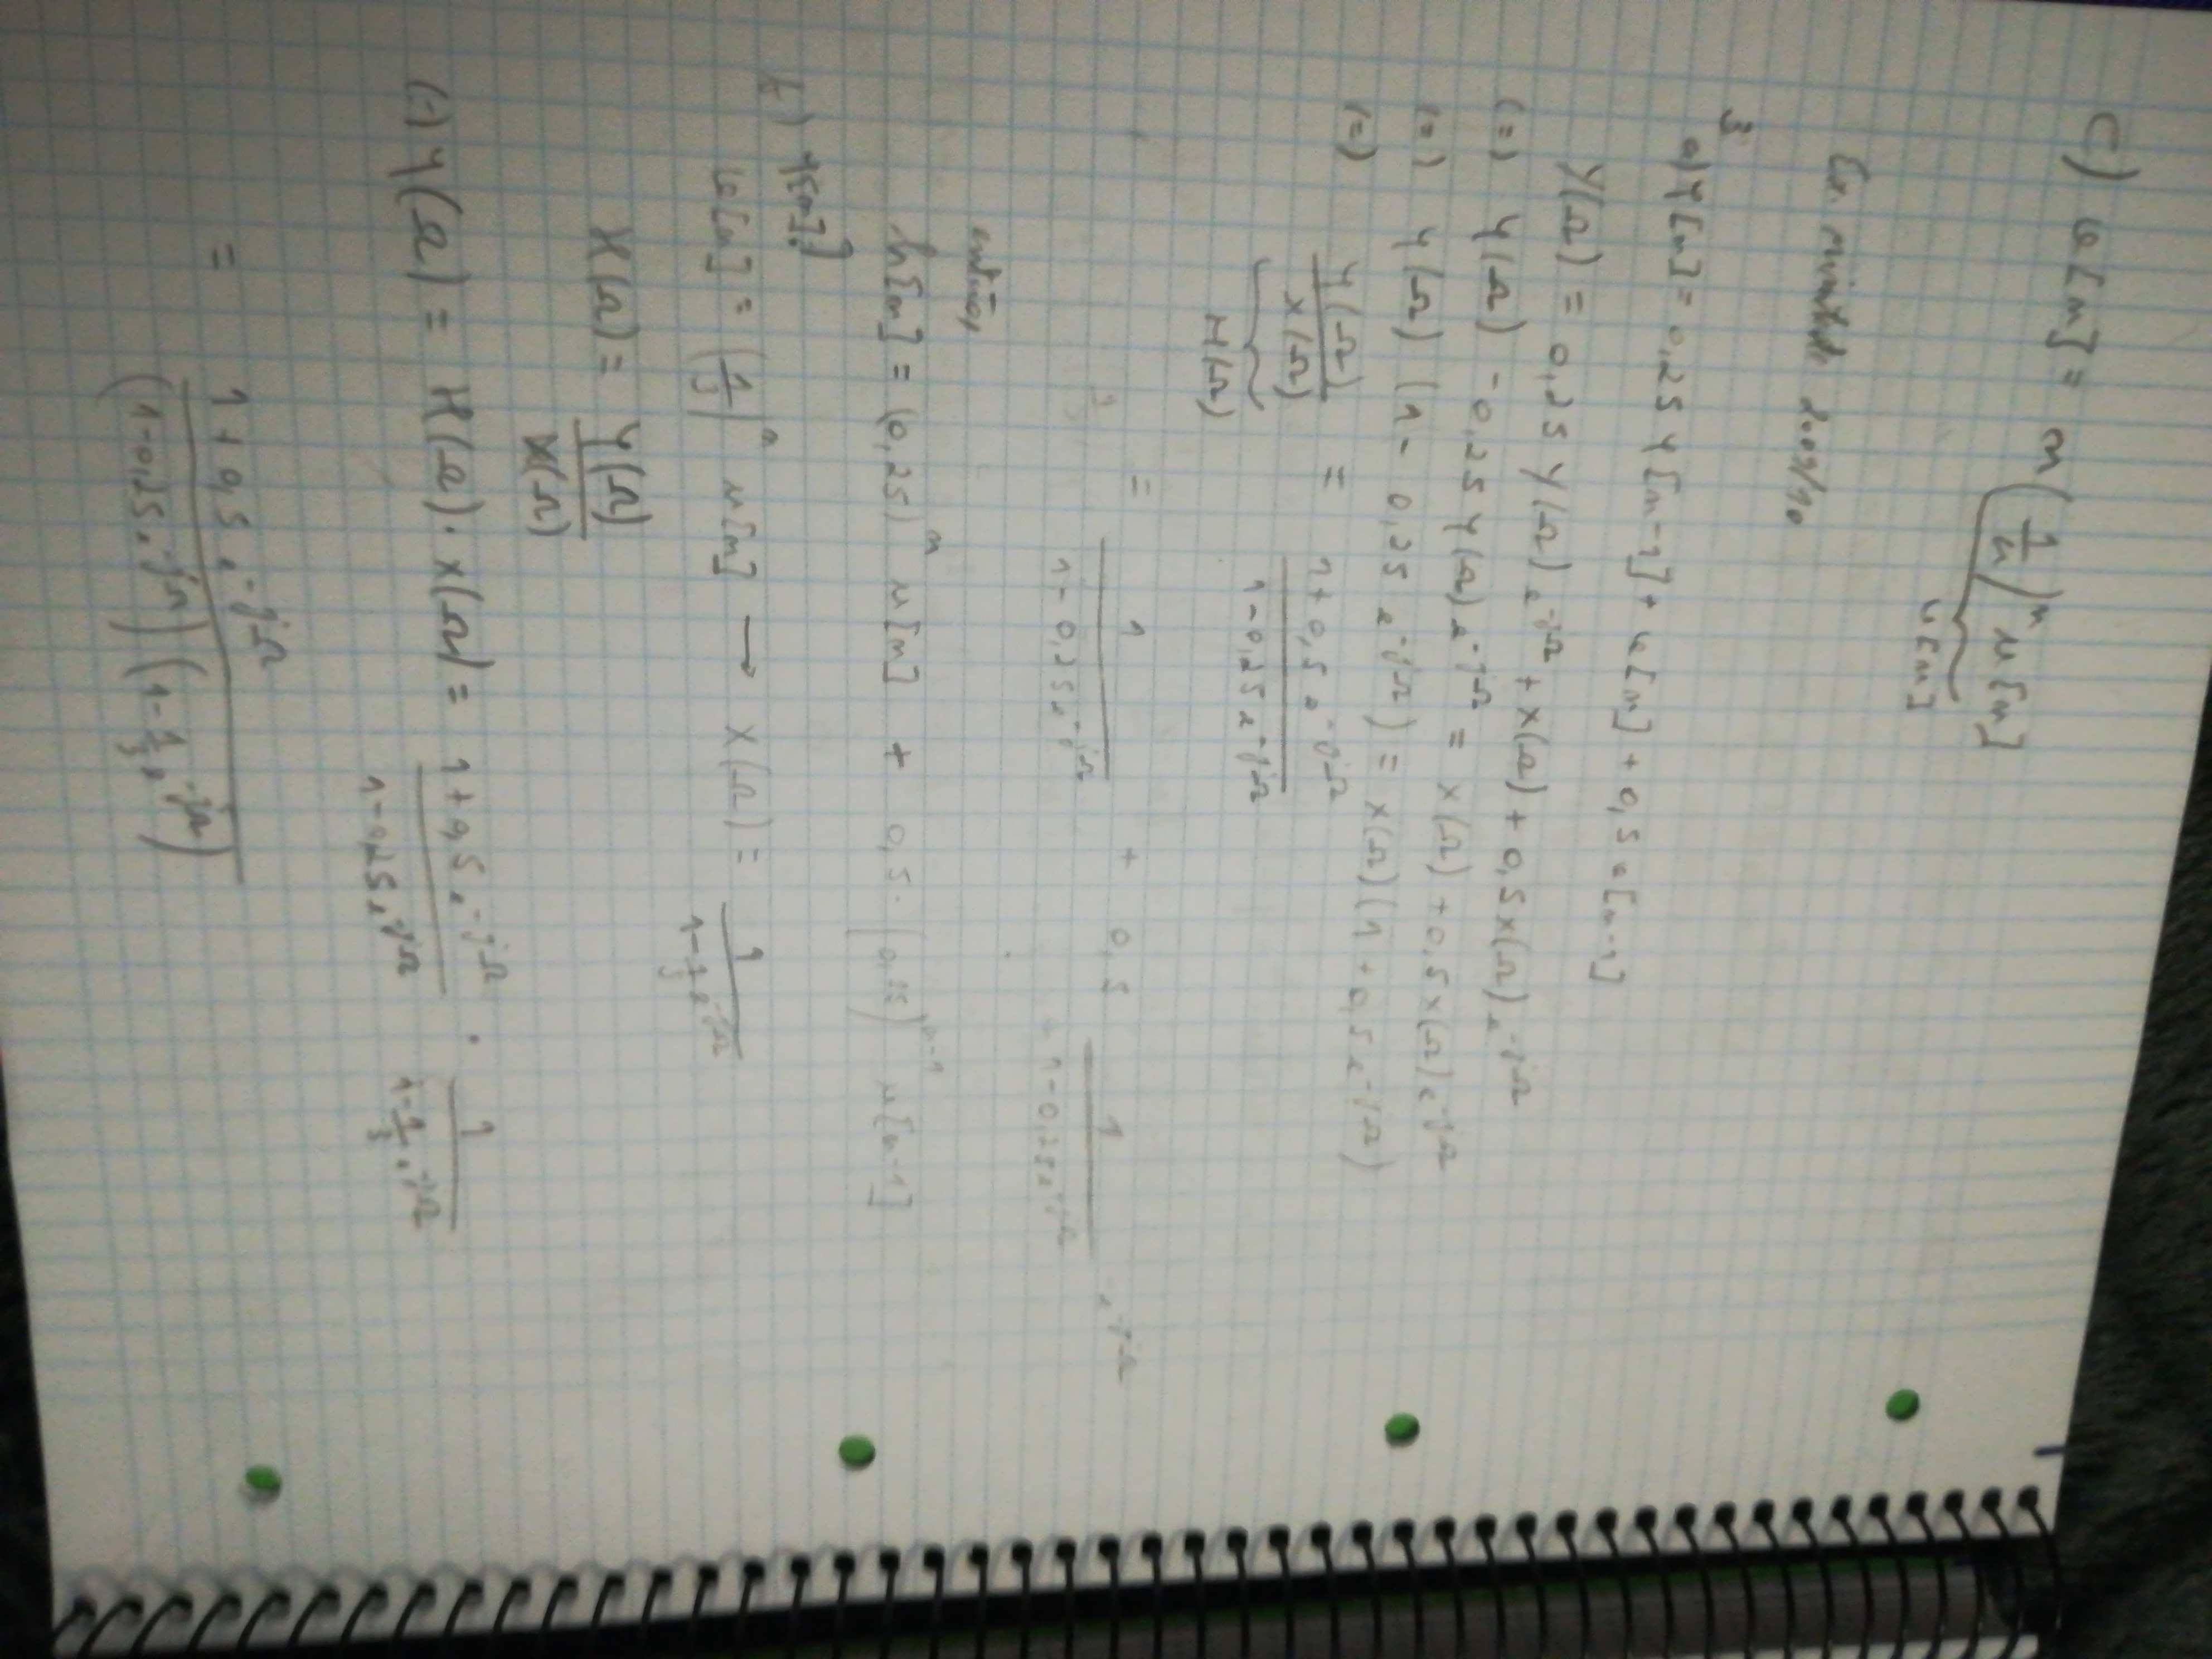 c) x[n] = n (1/4)^n u[n]
v[n]
Ex. 2009/10
3
a) y[n] = 0,25 y[n-1] + x[n] + 0,5 x[n-1]
Y(Ω) = 0,25 Y(Ω) e^-jΩ + X(Ω) + 0,5 X(Ω) e^-jΩ
(=) Y(Ω) - 0,25 Y(Ω) e^-jΩ = X(Ω) + 0,5 X(Ω) e^-jΩ
(=) Y(Ω) (1 - 0,25 e^-jΩ) = X(Ω) (1 + 0,5 e^-jΩ)
(=) Y(Ω) / X(Ω) = (1 + 0,5 e^-jΩ) / (1 - 0,25 e^-jΩ)
H(Ω)
= 1 / (1 - 0,25 e^-jΩ) + 0,5 1 / (1 - 0,25 e^-jΩ) e^-jΩ
então,
h[n] = (0,25)^n u[n] + 0,5 · (0,25)^n-1 u[n-1]
b) y[n]?
x[n] = (1/3)^n u[n] → X(Ω) = 1 / (1 - 1/3 e^-jΩ)
H(Ω) = Y(Ω) / X(Ω)
(=) Y(Ω) = H(Ω) · X(Ω) = (1 + 0,5 e^-jΩ) / (1 - 0,25 e^-jΩ) · 1 / (1 - 1/3 e^-jΩ)
= (1 + 0,5 e^-jΩ) / ((1 - 0,25 e^-jΩ) (1 - 1/3 e^-jΩ))